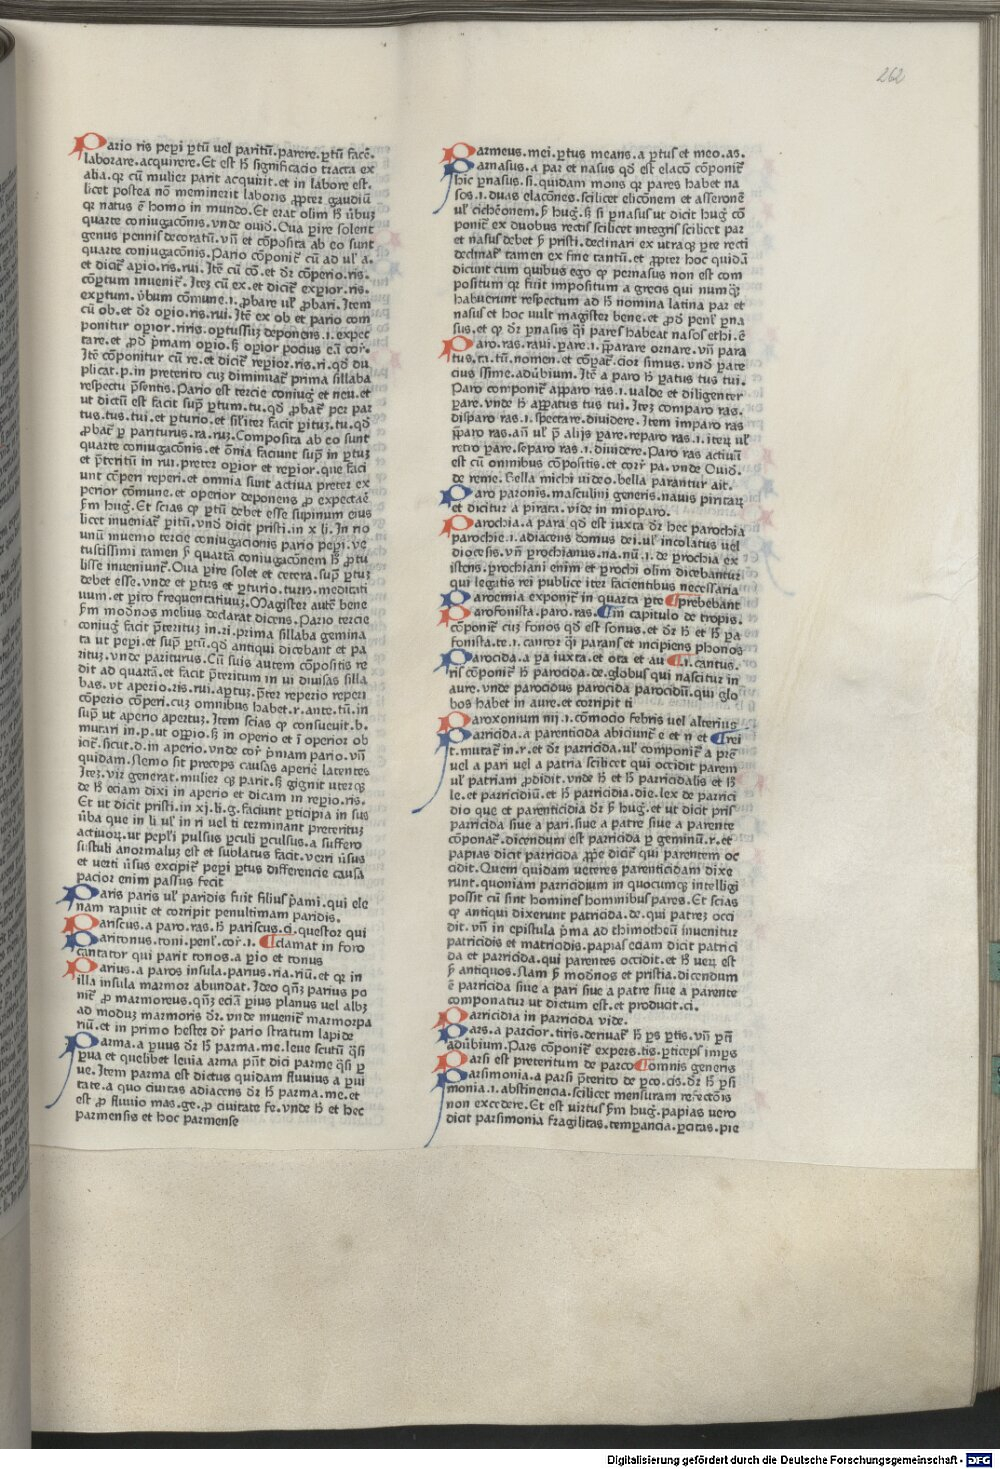 262
Pario ris peꝑi ꝑtū uel paritū.parere.ꝑtū facē.
laborare.acquirere.Et est ħ significacio tracta ex
alia.qꝛ cū mulier parit acquirit.et in labore est.
licet postea nō meminerit laboris ꝓpter gaudiū
qꝛ natus ē homo in mundo.Et erat olim ħ ūbuꝫ
quarte coniugacōnis.vnde ouid.Oua ꝑire solent
genus pennis decoratū.vn̄ et cōposita ab eo sunt
quarte coniugacōnis.Pario cōponit̄ cū ad ul̄ a.
et dicit̄ aꝑio.ris.rui.Itē cū cō.et dr̄ cōperio.ris.
cōꝑtum inuenit̄.Iteꝫ cū ex.et dicit̄ exꝑior.ris.
exꝑtum.v̄bum cōmune.i.ꝓbare ul̄ ꝓbari.Item
cū ob.et dr̄ oꝑio.ris.rui.Itē ex ob et pario com
ponitur oꝑior.riris.oꝑtussūꝫ deponens.i.expec
tare.et ꝓd p̄mam oꝑio.ꝫ oꝑior pocius eā cor̄.
Itē cōponitur cū re.et dicit̄ reꝑior.ris.ri.qd̄ du
plicat.p.in preterito cuꝫ diminuat̄ prima sillaba
respectu p̄sentis.Pario est tercie coniuḡ et neu.et
ut dictū est facit sup̄ ꝑtum.tu.qd̄ ꝓbat̄ per par
tus.tus.tui.et ꝑturio.et sil̄iter facit ꝑituꝫ.tu.qd̄
ꝓbat̄ ꝑ pariturus.ra.ruꝫ.Composita ab eo sunt
quarte coniugacōnis.et ōnia faciunt sup̄ in ꝑtuꝫ
et p̄teritū in rui.preter oꝑior et reꝑior.que faci
unt cōperi reperi.et omnia sunt actiua preter ex
perior cōmune.et operior deponens ꝓ expectaē
ẜm huḡ.Et scias qꝫ ꝑtū debet esse supinum eius
licet inueniat̄ ꝑitū.vnd̄ dicit pristi.in x li.In rio
unū inuenio tercie coniugacionis pario peꝑi.ve
tustissimi tamen ẜ quartā coniugacōnem ħ ꝓtu
lisse inueniunt̄.Oua ꝑire solet et cetera.sup̄ ꝑtuꝫ
debet esse.vnde et ꝑtus et ꝑturio.turis.meditati
uum.et ꝑito frequentatiuuꝫ.Magister autē bene
ẜm mod̄nos melius declarat dicens.Pario tercie
coniuḡ facit p̄terituꝫ in.ri.prima sillaba gemina
ta ut peꝑi.et sup̄ ꝑtū.qd̄ antiqui dicebant et pa
rituꝫ.vnde pariturus.Cū suis autem cōpositis re
dit ad quartā.et facit p̄teritum in ui diuisas silla
bas.vt aperio.ris.rui.aꝑtuꝫ.p̄ter reperio reperi
cōperio cōperi.cuꝫ omnibus habet.r.ante.tū.in
sup̄ ut aperio apertuꝫ.Item scias qꝫ consueuit.b.
mutari in.p.ut oꝑꝑio.ꝫ in operio et ī operior ob
icit̄.sicut.d.in aperio.vnde cor̄ p̄mam pario.vn̄
quidam.Nemo sit preceps causas aperiē latentes
Iteꝫ.vir generat.mulier qꝫ parit.ꝫ gignit uterqꝫ
de ħ eciam dixi in aperio et dicam in reꝑio.ris.
Et ut dicit pristi.in xj.li.g.faciunt ꝑticipia in sus
ūba que in li ul̄ in ri uel ti terminant preterituꝫ
actiuoꝝ.ut pepl̄i pulsus ꝑculi ꝑculsus.a suffero
sustuli anormaluꝫ est et sublatus facit.verri ūsus
et verti ūsus excipit̄ peꝑi ꝑtus differencie causa
pacior enim passus fecit
Paris paris ul̄ paridis fuit filius p̄ami.qui ele
nam rapuit et corripit penultimam paridis.
Pariscus.a paro.ras.ħ pariscus.ci.questor qui
Paritonus.toni.penl̄.cor̄.i. ¶clamat in foro
cantator qui parit tonos.a ꝑio et tonus
Parius.a paros insula.parius.ria.riū.et qꝛ in
illa insula marmor abundat.Ideo qn̄ꝫ parius po
nit̄ ꝓ marmoreus.qn̄ꝫ eciā ꝑius planus uel albꝫ
ad moduꝫ marmoris dr̄.vnde inuenit̄ marmorpa
riū.et in primo hester dr̄ pario stratum lapide
Parma.a ꝑuus dr̄ ħ parma.me.leue scutū q̄si
ꝑua et quelibet leuia arma pn̄t dici parme q̄si ꝑ
ue.Item parma est dictus quidam fluuius a ꝑui
tate.a quo ciuitas adiacens dr̄ ħ parma.me.et
est ꝓ fluuio mas.ge.ꝓ ciuitate fe.vnde ħ et hec
parmensis et hoc parmense
Parmeus.mei.ꝑtus means.a ꝑtus et meo.as.
Parnasus.a par et nasus qd̄ est elacō cōponit̄
hic ꝑnasus.si.quidam mons qꝛ pares habet na
sos.i.duas elacōnes.scilicet eliconem et asseronē
ul̄ cichēonem.ẜ huḡ.ꝫ si ꝑnasus ut dicit huḡ cō
ponit̄ ex duobus rectis scilicet integris scilicet par
et nasus debet ẜ pristi.declinari ex utraqꝫ ꝑte recti
declinat̄ tamen ex fine tantū.et ꝓpter hoc quidā
dicunt cum quibus ego qꝫ pernasus non est com
positum qꝛ fuit impositum a grecis qui numqꝫ
habuerunt respectum ad ħ nomina latina par et
nasus et hoc uult magister bene.et ꝓd̄ penl̄ ꝑna
sus.et qꝫ dr̄ ꝑnasus q̄i pares habeat nasos ethi.ē
Paro.ras.raui.ꝑare.i.p̄parare ornare.vn̄ para
tus.ra.tū.nomen.et cōꝑat̄.cior simus.vnd̄ ꝑate
cius ssime.adūbium.Itē a paro ħ ꝑatus tus tui.
Paro componit̄ apꝑaro ras.i.ualde et diligenter
ꝑare.vnde ħ apꝑatus tus tui.Iteꝫ comparo ras.
disparo ras.i.spectare.diuidere.Item imparo ras
p̄paro ras.an̄ ul̄ p̄ alijs ꝑare.reparo ras.i.iteꝝ ul̄
retro ꝑare.seꝑaro ras.i.diuidere.Paro ras actiuū
est cū omnibus cōpositis.et corr̄ pa.vnde Ouid̄.
de reme.Bella michi uideo.bella parantur ait.
Paro paronis.masculini generis.nauis piritaꝝ
et dicitur a pirata.vide in mioparo.
Parochia.a para qd̄ est iuxta dr̄ hec parochia
parochie.i.adiacens domus dei.ul̄ incolatus uel
diocesis.vn̄ ꝑrochianus.na.nū.i.de ꝑrochia ex
istens.ꝑrochiani enim et ꝑrochi olim dicebantur
qui legatis rei publice iter facientibus necessaria
Paroemia exponit̄ in quarta ꝑte ¶prebebant
Parofonista.paro.ras. ¶in capitulo de tropis.
cōponit̄ cuꝫ fonos qd̄ est sonus.et dr̄ ħ et ħ pa
fonista.te.i.cantor q̄i parans et incipiens phonos
Parocida.a ꝑa iuxta.et ota et au ¶.i.cantus.
ris cōponit̄ ħ parocida.de.globus qui nascitur in
aure.vnde parocidus parocida parocidū.qui glo
bos habet in aure.et corripit ti
Paroxonium nij.i.cōmocio febris uel alterius
Parricida.a parenticida abiciunt̄ e et n et ¶rei
t.mutat̄ in.r.et dr̄ parricida.ul̄ componit̄ a prē
uel a pari uel a patria scilicet qui occidit parem
ul̄ patriam ꝓdidit.vnde ħ et ħ parricidalis et ħ
le.et parricidiū.et ħ parricidia.die.lex de parrici
dio que et parenticidia dr̄ ẜ huḡ.et ut dicit pris
parricida siue a pari.siue a patre siue a parente
cōponat̄.dicendum est parricida ꝑ geminū.r.et
papias dicit parricida ꝓpͥe dicit̄ qui parentem oc
cidit.Quem quidam ueteres parenticidam dixe
runt.quoniam parricidium in quocumqꝫ intelligi
possit cū sint homines hominibus pares.Et scias
qꝫ antiqui dixerunt patricida.de.qui patreꝫ occi
dit.vn̄ in epistula p̄ma ad thimotheū inuenitur
patricidis et matricidis.papias eciam dicit patrici
da et parricida.qui parentes occidit.et ħ veꝝ est
ẜ antiquos.Nam ẜ mod̄nos et pristiā.dicendum
ē parricida siue a pari siue a patre siue a parente
componatur ut dictum est.et producit.ci.
Parricidia in parricida vide.
Pars.a parcior.tiris.deriuat̄ ħ ꝑs ꝑtis.vn̄ ꝑn̄
adūbium.Pars cōponit̄ expers.tis.ꝑticeps imꝑs
Parsi est preteritum de parco ¶omnis generis
Parsimonia.a parsi p̄terito de ꝑco.cis.dr̄ ħ ꝑsi
monia.i.abstinencia.scilicet mensuram refectōis
non excedere.Et est virtus ẜm huḡ.papias vero
dicit parsimonia fragilitas.temꝑancia.ꝑcitas.pie
Digitalisierung gefördert durch die Deutsche Forschungsgemeinschaft - DFG